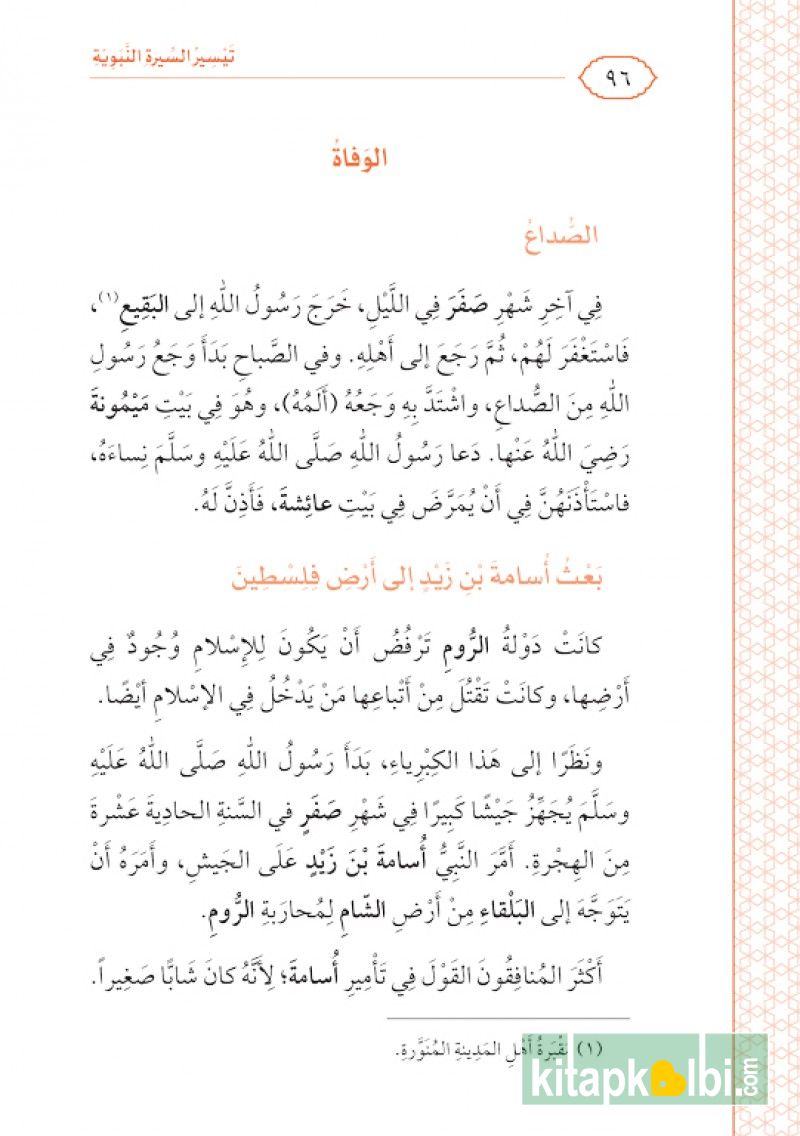 تَيْسِيرُ السِّيرةِ النَّبَوِيَةِ
٩٦
الوَفاةُ
الصُّداعُ
فِي آخِرِ شَهْرِ صَفَرَ فِي اللَّيْلِ، خَرَجَ رَسُولُ اللهِ إلى البَقِيعِ(١)،
فَاسْتَغْفَرَ لَهُمْ، ثُمَّ رَجَعَ إلى أَهْلِهِ. وفي الصَّباحِ بَدَأَ وَجَعُ رَسُولِ
اللهِ مِنَ الصُّداعِ، واشْتَدَّ بِهِ وَجَعُهُ (أَلَمُهُ)، وهُوَ فِي بَيْتِ مَيْمُونةَ
رَضِيَ اللهُ عَنْها. دَعا رَسُولُ اللهِ صَلَّى اللهُ عَلَيْهِ وسَلَّمَ نِساءَهُ،
فاسْتَأْذَنَهُنَّ فِي أَنْ يُمَرَّضَ فِي بَيْتِ عائِشةَ، فَأَذِنَّ لَهُ.
بَعْثُ أُسامةَ بْنِ زَيْدٍ إلى أَرْضِ فِلِسْطِينَ
كانَتْ دَوْلةُ الرُّومِ تَرْفُضُ أَنْ يَكُونَ لِلإِسْلامِ وُجُودٌ فِي
أَرْضِها، وكانَتْ تَقْتُلَ مِنْ أَتْباعِها مَنْ يَدْخُلُ فِي الإسْلامِ أيْضًا.
ونَظَرًا إلى هَذا الكِبْرِياءِ، بَدَأَ رَسُولُ اللهِ صَلَّى اللهُ عَلَيْهِ
وسَلَّمَ يُجَهِّزُ جَيْشًا كَبِيرًا فِي شَهْرِ صَفَرٍ في السَّنةِ الحادِيةَ عَشْرةَ
مِنَ الهِجْرةِ. أَمَّرَ النَّبِيُّ أُسامةَ بْنَ زَيْدٍ عَلَى الجَيشِ، وأَمَرَهُ أَنْ
يَتَوَجَّهَ إلى البَلْقاءِ مِنْ أَرْضِ الشّامِ لِمُحارَبةِ الرُّومِ.
أَكْثَرَ المُنافِقُونَ القَوْلَ فِي تَأْمِيرِ أُسامةَ؛ لِأَنَّهُ كانَ شابًّا صَغِيراً.
(١) مَقْبَرةُ أَهْلِ المَدِينةِ المُنَوَّرةِ.
kitapkalbi.com